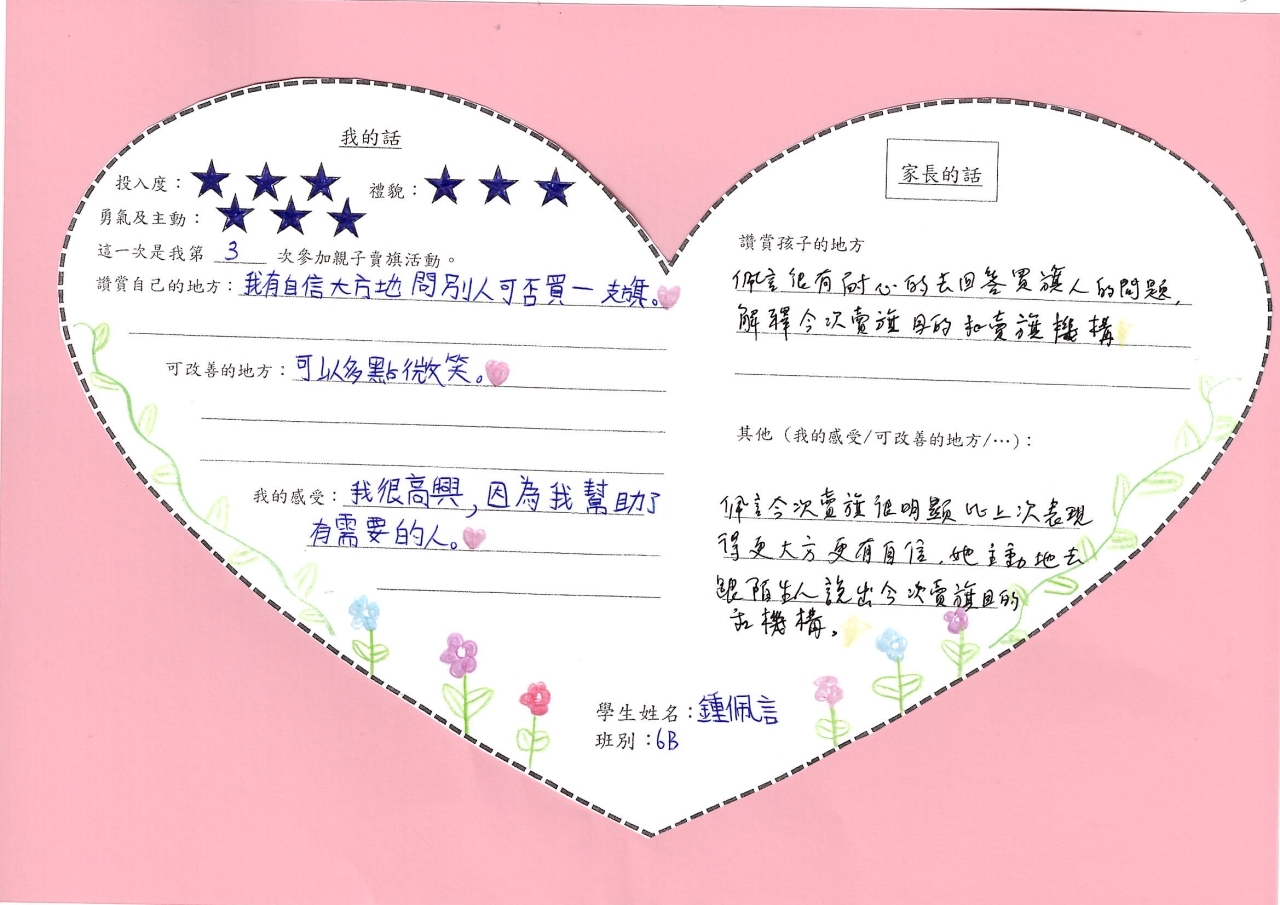 我的話
投入度：★★★ 禮貌：★★★
勇氣及主動：★★★
這一次是我第 3 次參加親子賣旗活動。
讚賞自己的地方：我有自信大方地問別人可否買一支旗。
可改善的地方：可以多點微笑。
我的感受：我很高興，因為我幫助了
有需要的人。
家長的話
讚賞孩子的地方
佩言很有耐心的去回答買旗人的問題，
解釋今次賣旗目的和賣旗機構
其他（我的感受/可改善的地方/…）：
佩言今次賣旗很明顯比上次表現
得更大方更有自信，她主動地去
跟陌生人說出今次賣旗目的
和機構。
學生姓名：鍾佩言
班別：6B